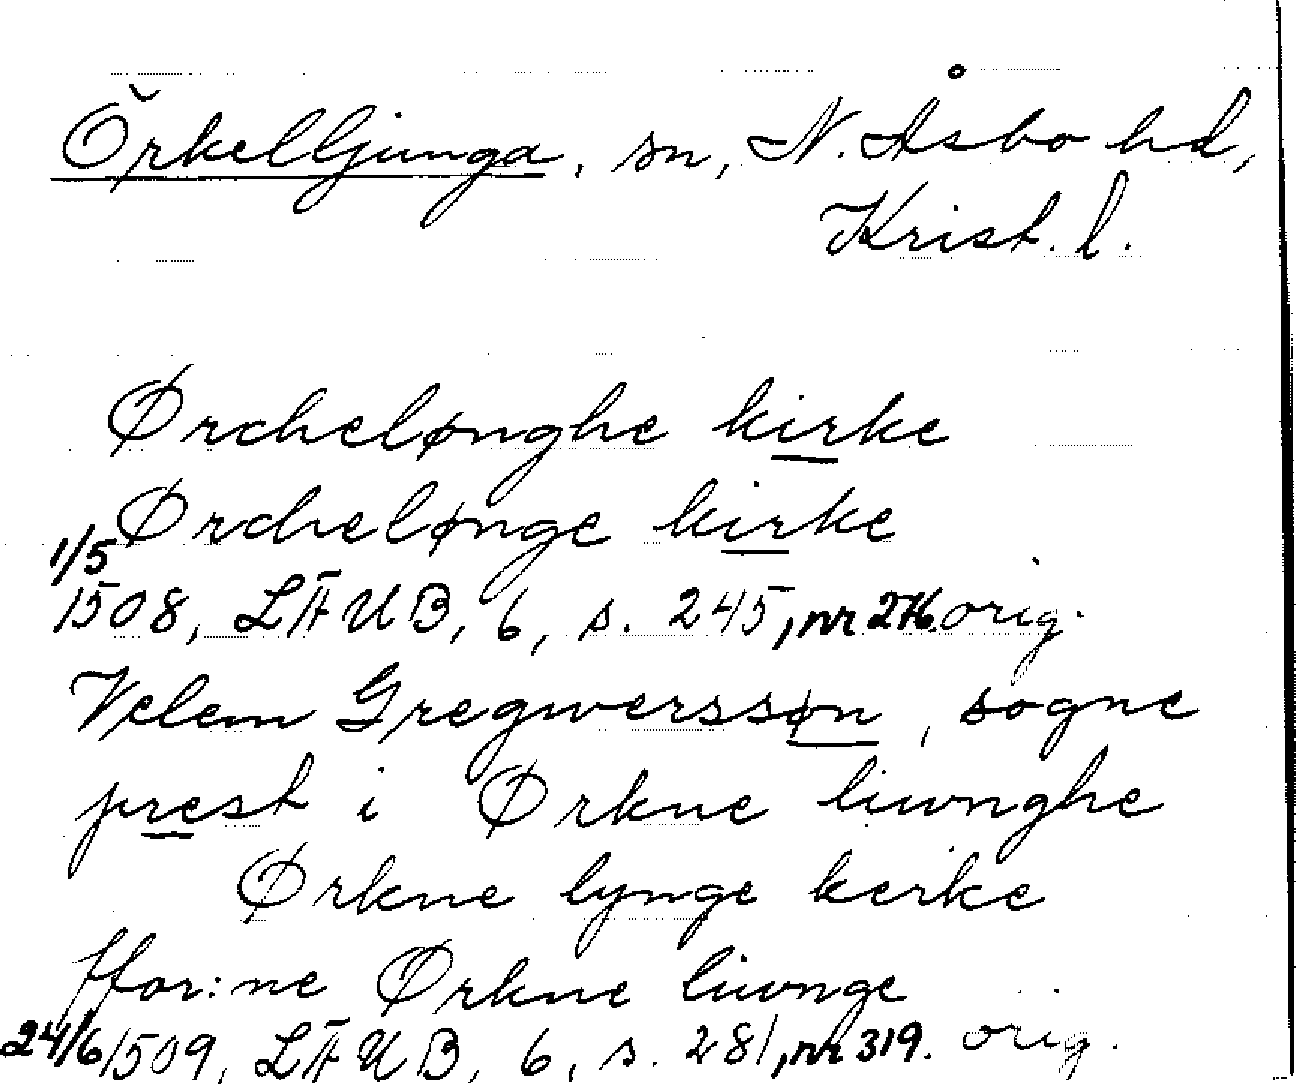 Örkelljunga, sn, N. Åsbo hd,
Krist. l.
Ørchelønghe kirke
Ørchelønge kirke
1/5
1508, LÄUB, 6, s. 245, nr 276. orig.
Velem Gregwerssøn, sogne
prest i Ørkne liwnghe
Ørkne lynge kerke
ffor:ne Ørkne liwnge
24/6 1509, LÄUB, 6, s. 281, nr 319. orig.